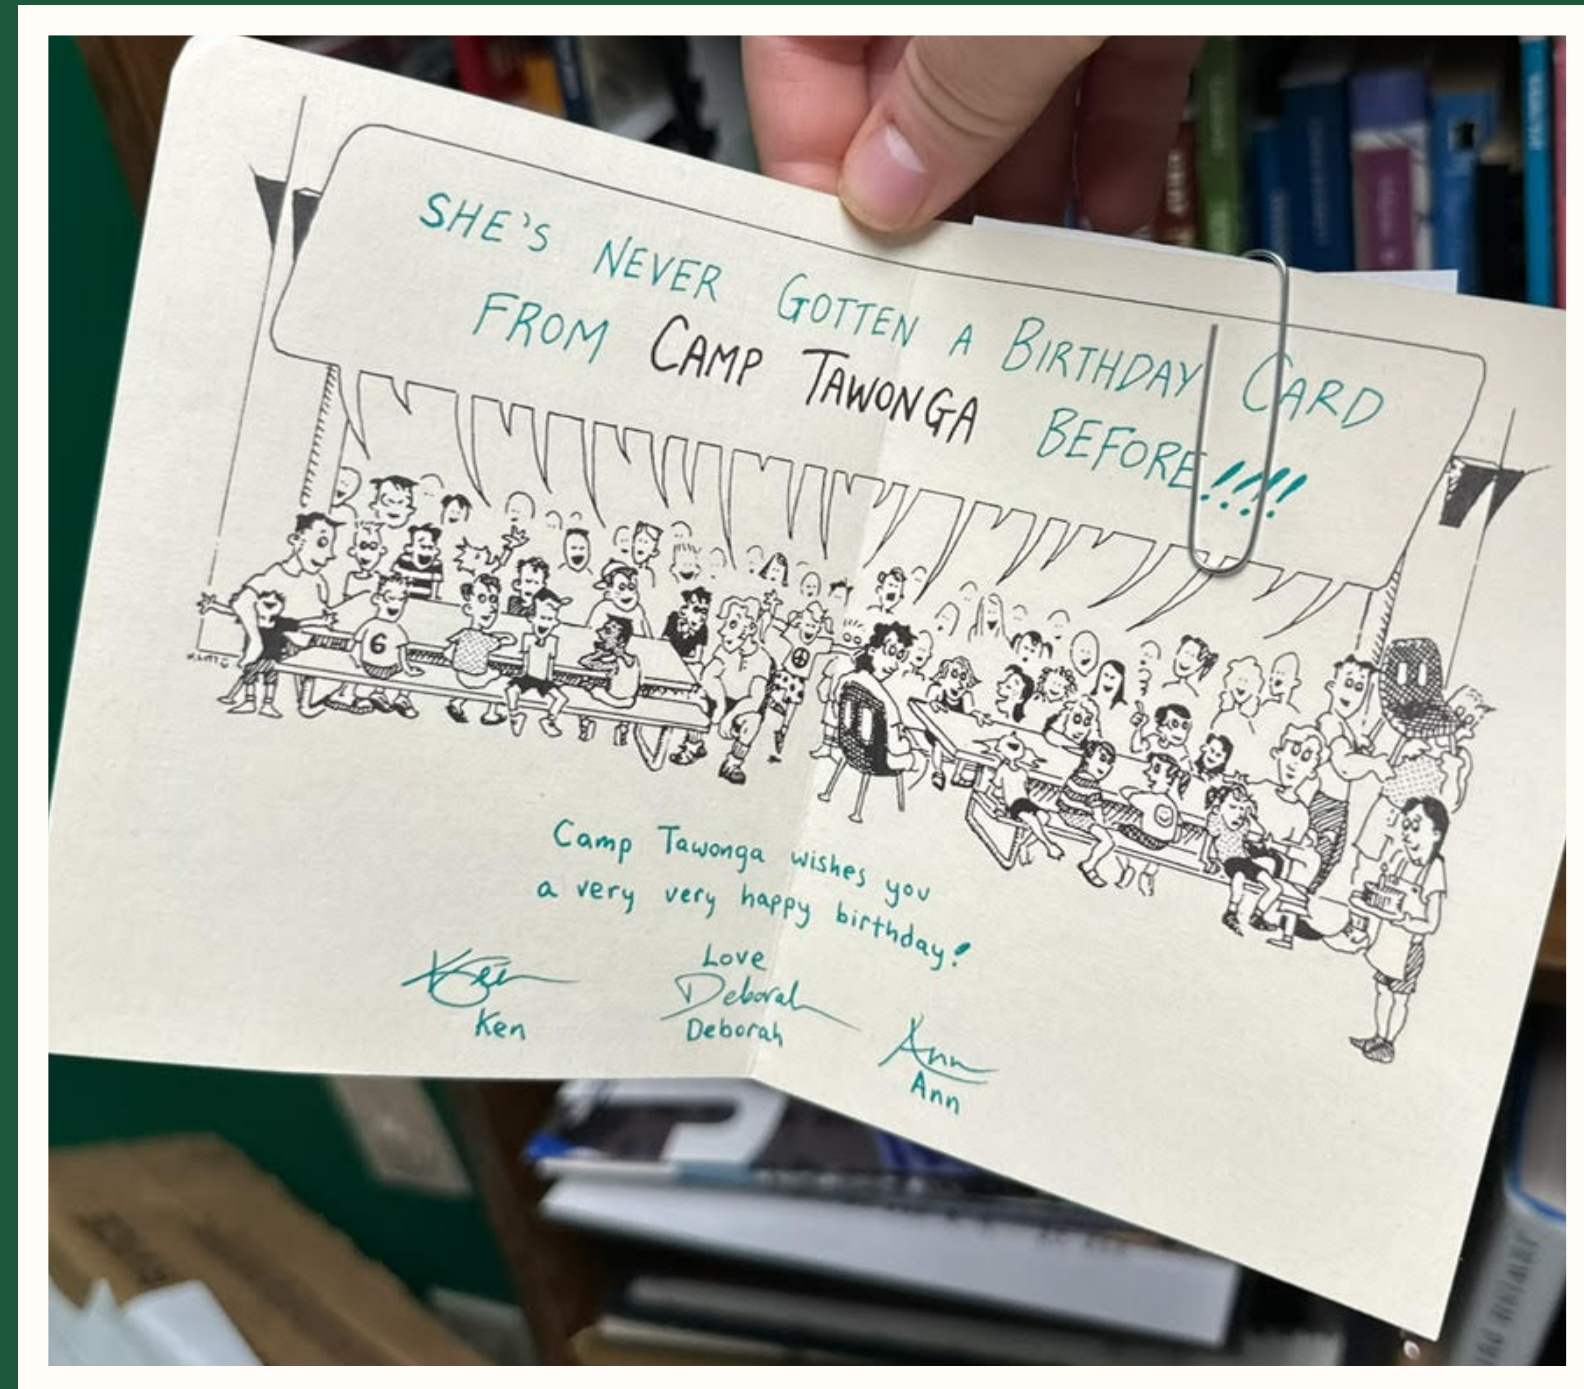 SHE'S NEVER GOTTEN A BIRTHDAY CARD
FROM CAMP TAWONGA BEFORE!!!!
6
Camp Tawonga wishes you
a very very happy birthday!
Love
Ken
Deborah
Ann
Ken
Deborah
Ann